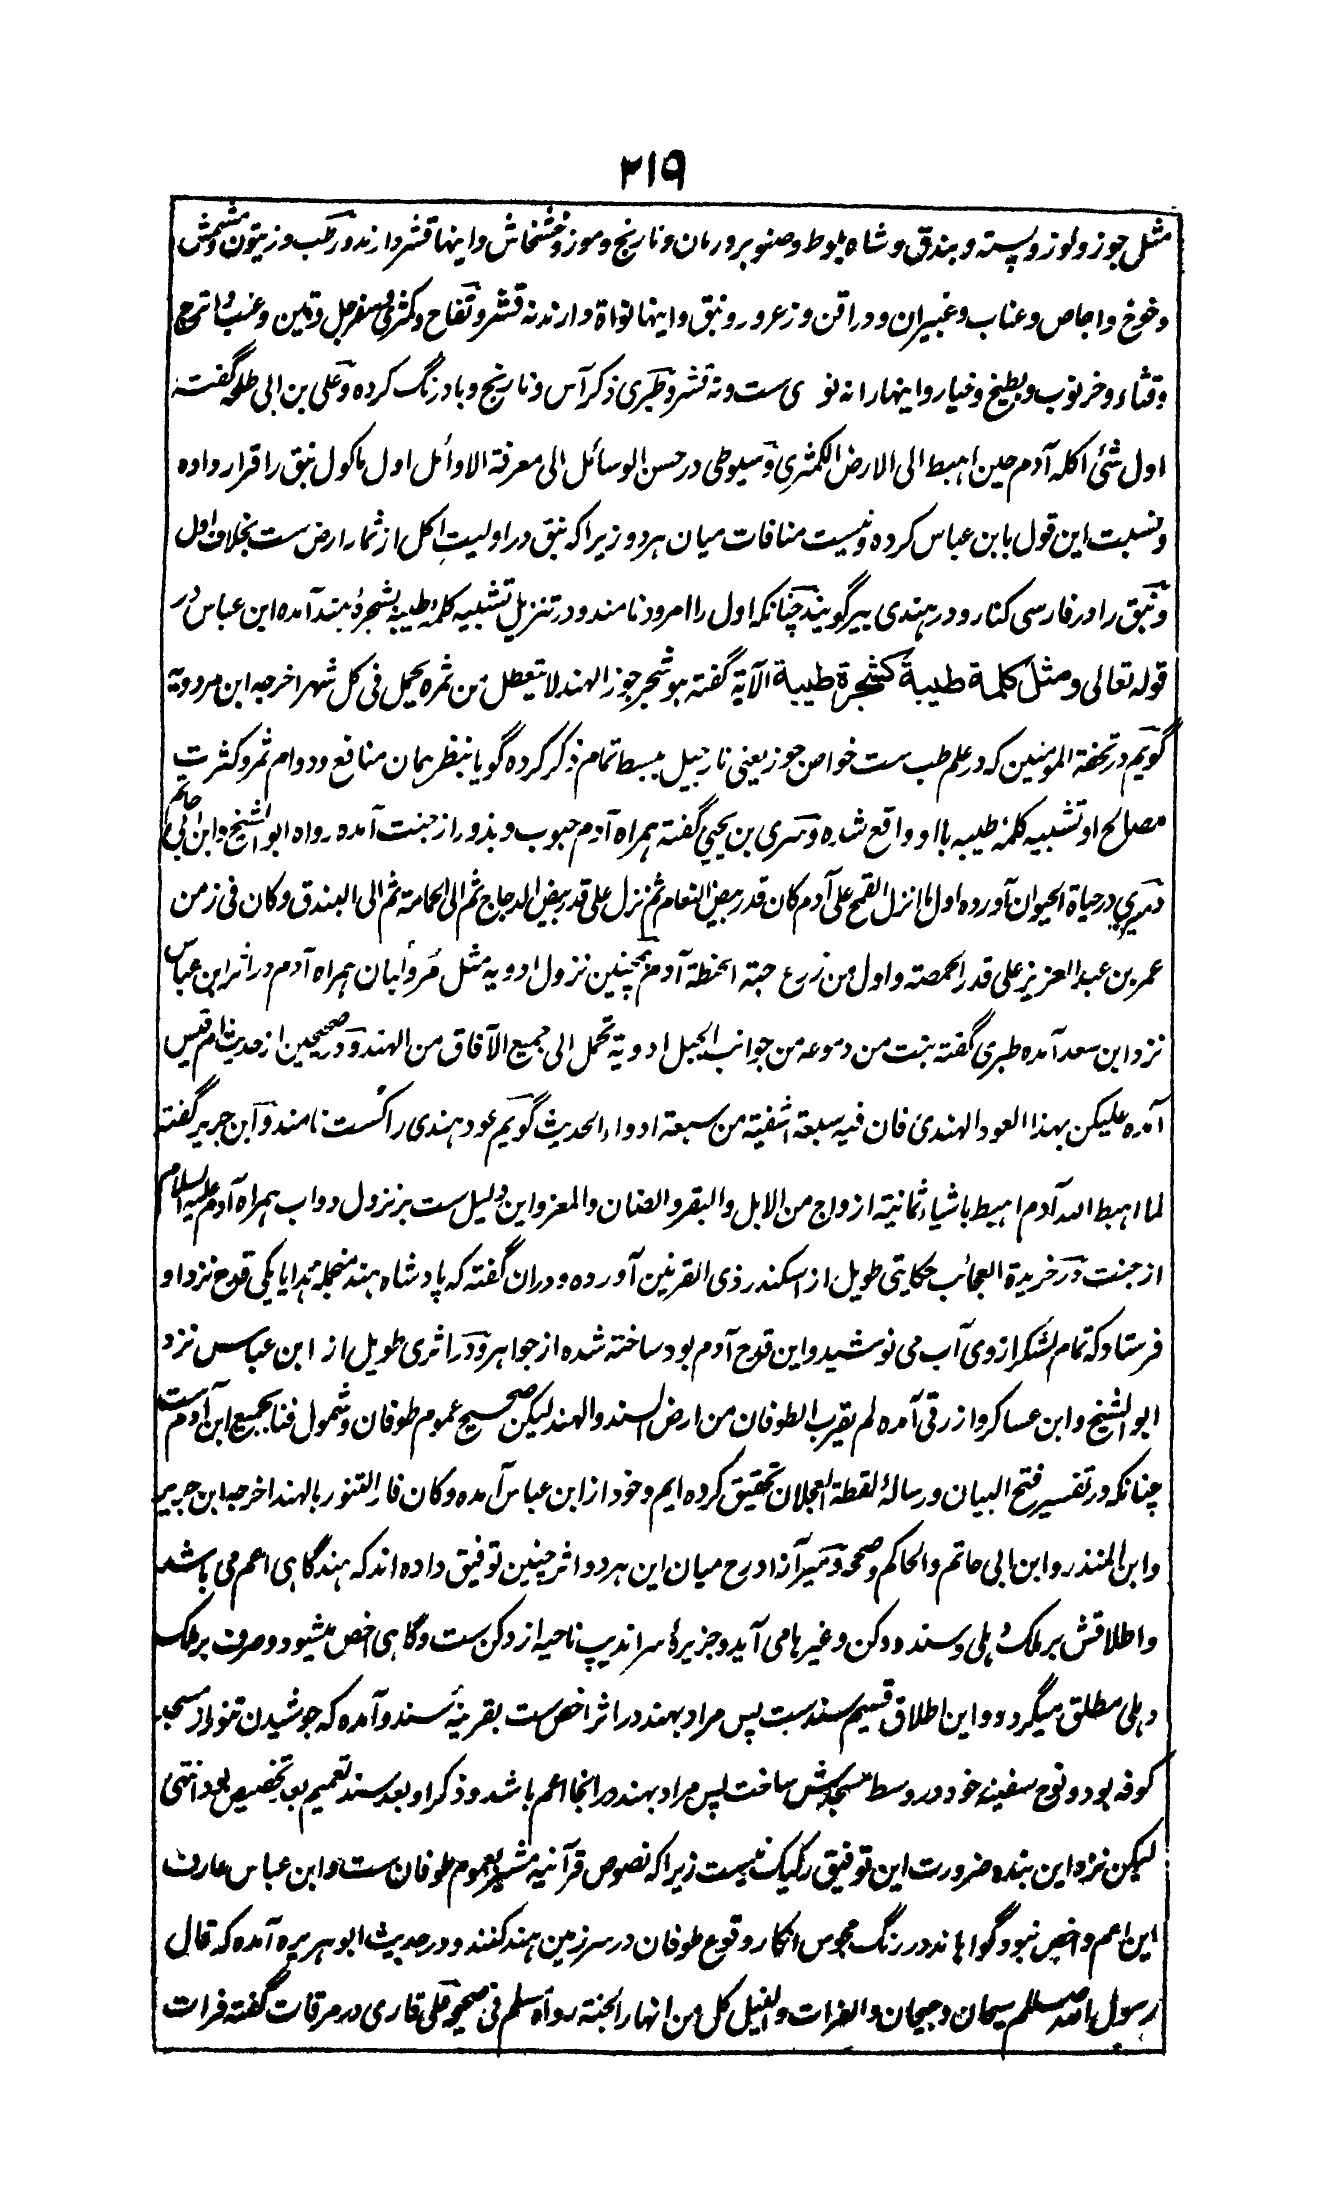 ۲۱۹
مثل جوز و لوز و پسته و بندق و شاه بلوط و صنوبر و رمان و نارنج و موز و خشخاش و اینها قشر دارند و رطب و زیتون و مشمش
و خوخ و اجاص و عناب و غبیران و دراقن و زعرور و نبق و اینها نواة دارند نه قشر و تفاح و کمثری و سفرجل و تین و عنب و اترج
و قثاء و خرنوب و بطیخ و خیار و اینها را نه نوی ست و نه قشر و طبری ذکر آس و نارنج و بادرنگ کرده و علی بن ابی طلحه گفته
اول شئی اکله آدم حین اهبط الی الارض الکمثری و سیوطی در حسن الوسائل الی معرفة الاوائل اول ماکول نبق را قرار داده
و نسبت این قول بابن عباس کرده و نیست منافات میان هر دو زیرا که نبق در اولیت اکل از ثمار ارض ست بخلاف اول
و نبق را در فارسی کنار و در هندی بیر گویند چنانکه اول را امرود نامند و در تنزیل تشبیه کلمۂ طیبه بشجرۂ هند آمده ابن عباس در
قوله تعالی و مثل کلمة طیبة کشجرة طیبة الآیة گفته هو شجر جوز الهند لا یتعطل من ثمره یحمل فی کل شهر اخرجه ابن مردویه
گویم در تحفة المومنین که در علم طب ست خواص جوز یعنی نارجیل ببسط تمام ذکر کرده گویا بنظر همان منافع و دوام ثمر و کثرت
مصالح او تشبیه کلمۂ طیبه باو واقع شده و سری بن یحیی گفته همراه آدم حبوب و بذور از جنت آمده رواه ابو الشیخ و ابن ابی حاتم
دمیری در حیاة الحیوان آورده اول ما انزل القمح علی آدم کان قدر بیض النعام ثم نزل علی قدر بیض الدجاج ثم الی الحمامة ثم الی البندق و کان فی زمن
عمر بن عبد العزیز علی قدر الحمصة و اول من زرع حبة الحنطة آدم همچنین نزول ادویه مثل مر و لبان همراه آدم در اثر ابن عباس
نزد ابن سعد آمده طبری گفته نبت من دموعه من جوانب الجبل ادویة تحمل الی جمیع الآفاق من الهند و در صحیحین از حدیث ام قیس
آمده علیکن بهذا العود الهندی فان فیه سبعة اشفیة من سبعة ادواء الحدیث گویم عود هندی را کست نامند و ابن جریر گفته
لما اهبط الله آدم اهبط باشیاء ثمانیة ازواج من الابل و البقر و الضان و المعز و این دلیل ست بر نزول دواب همراه آدم علیه السلام
از جنت و در خریدة العجائب حکایتی طویل از اسکندر ذی القرنین آورده و دران گفته که پادشاه هند منجمله هدایا یکی قدح نزد او
فرستاد که تمام لشکر از وی آب می نوشید و این قدح آدم بود ساخته شده از جواهر و در اثری طویل از ابن عباس نزد
ابو الشیخ و ابن عساکر و ازرقی آمده لم یقرب الطوفان من ارض السند و الهند لیکن صحیح عموم طوفان و شمول فنا بجمیع ابن آدم ست
چنانکه در تفسیر فتح البیان و رسالۂ لقطة العجلان تحقیق کرده ایم و خود از ابن عباس آمده و کان فار التنور بالهند اخرجه ابن جریر
و ابن المنذر و ابن ابی حاتم و الحاکم و صححه و میر آزاد رح میان این هر دو اثر چنین توفیق داده اند که هند گاهی اعم می باشد
و اطلاقش بر ملک دهلی و سند و دکن و غیرها می آید و جزیرۂ سراندیپ ناحیه از دکن ست و گاهی اخص میشود و صرف بر ملک
دهلی مطلق میگردد و این اطلاق قسیم سند ست پس مراد بهند در اثر اخص ست بقرینۂ سند و آمده که جوشیدن تنور از مسجد
کوفه بود و نوح سفینه خود در وسط مسجدش ساخت پس مراد بهند در انجا اعم باشد و ذکر او بعد سند تعمیم بعد تخصیص بود انتهی
لیکن نزد این بنده ضرورت این توفیق رکیک نیست زیرا که نصوص قرآنیه مشیر بعموم طوفان ست و ابن عباس عارف
این اعم و اخص نبود گواهاند در رنگ مجوس انکار وقوع طوفان در سرزمین هند کنند و در حدیث ابو هریره آمده که قال
رسول الله صلعم سیحان و جیحان و الفرات و النیل کل من انهار الجنة رواه مسلم فی صحیحه علی قاری در مرقات گفته فرات